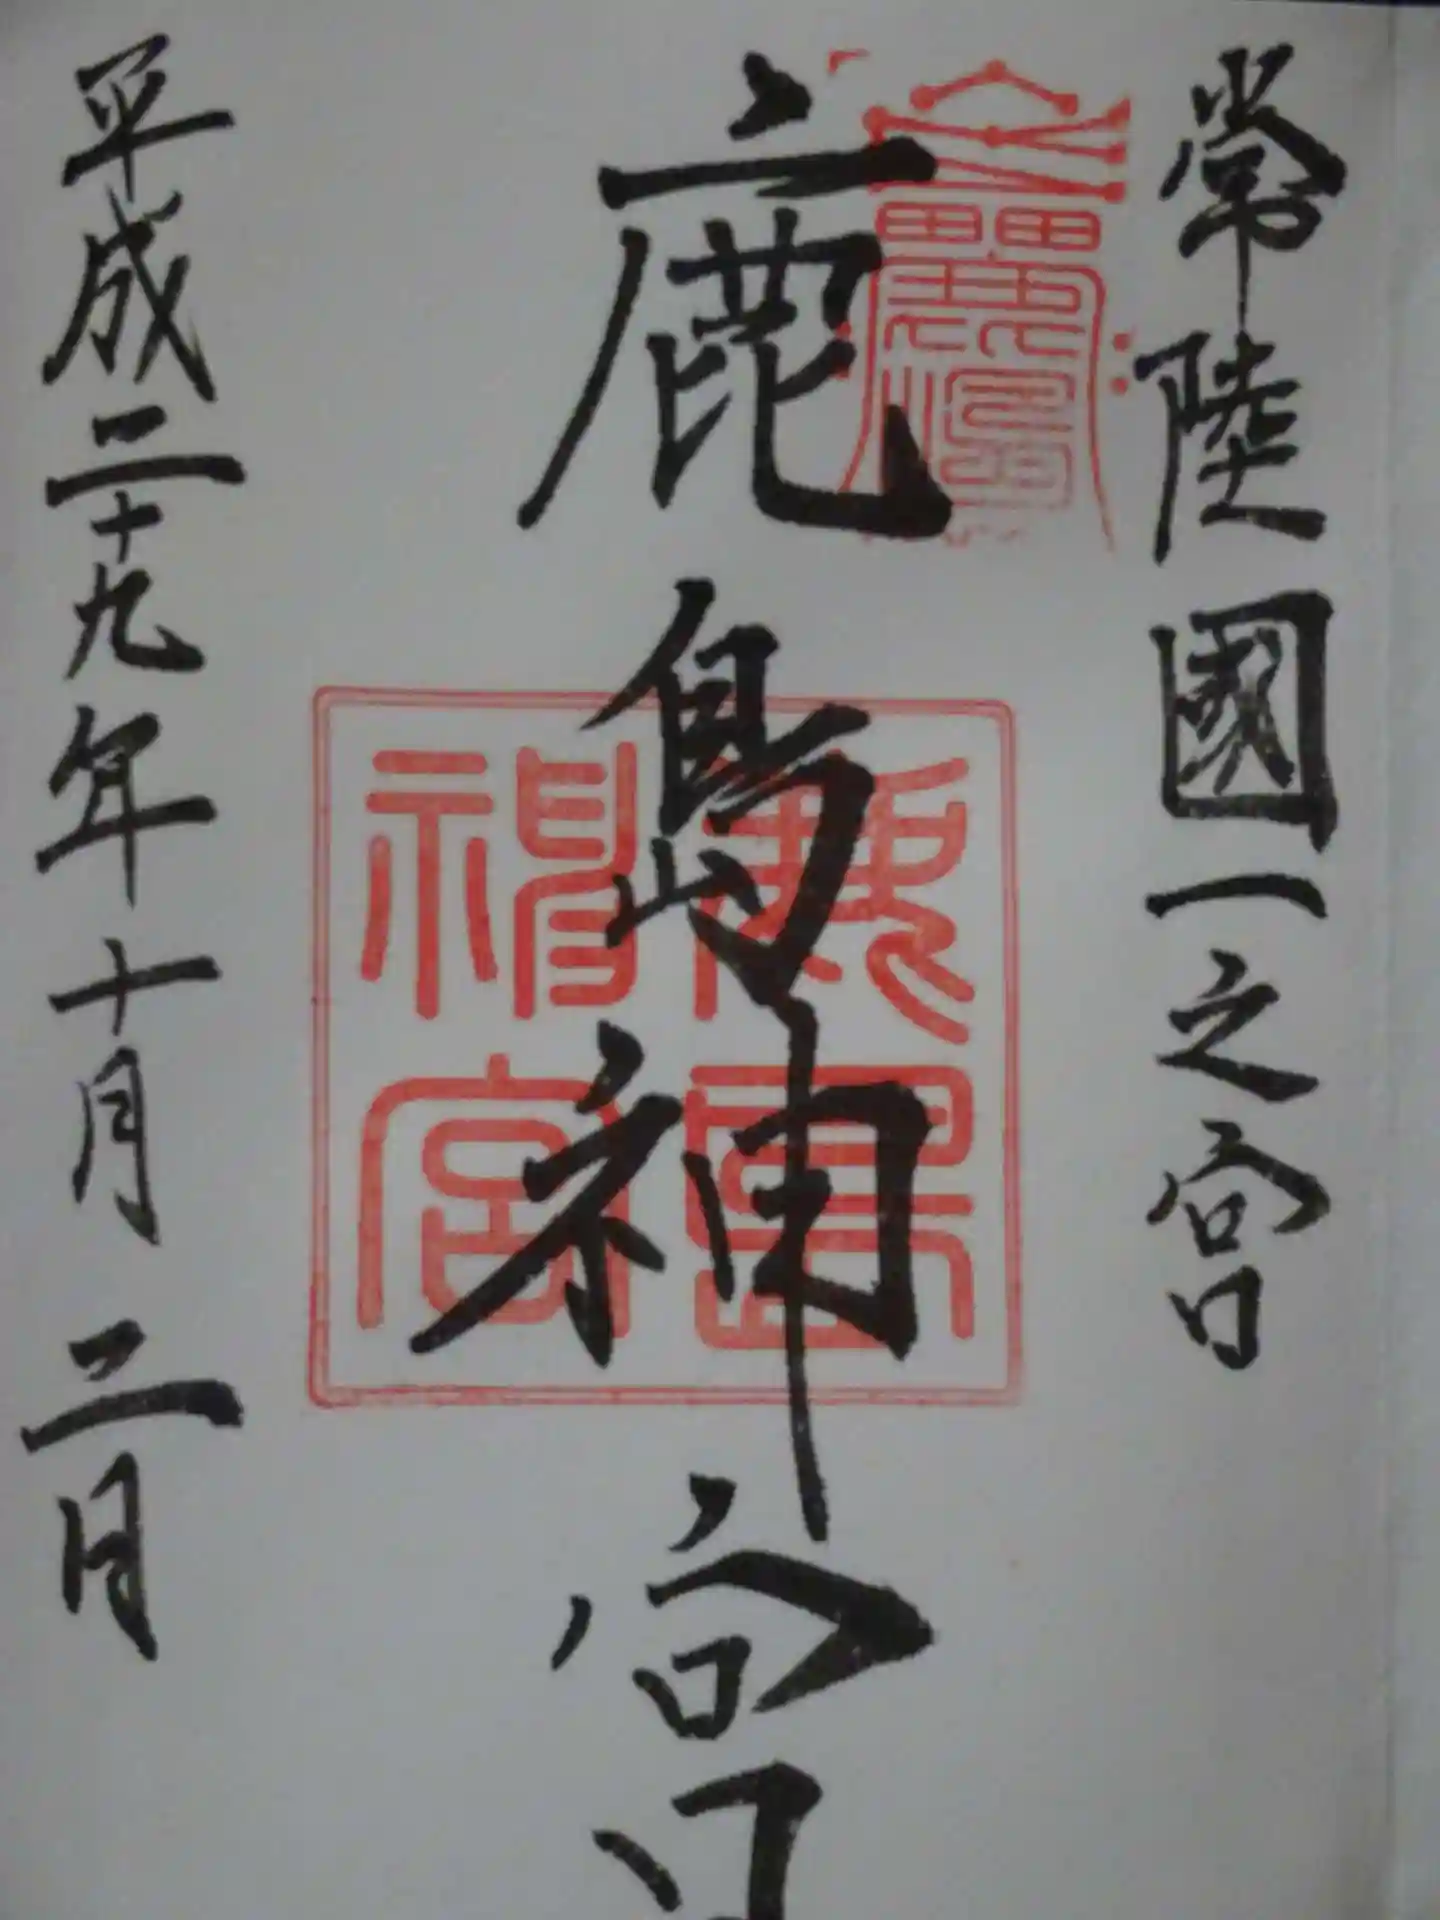 常陸國一之宮
鹿島神宮
平成二十九年十月二日
鹿島神宮